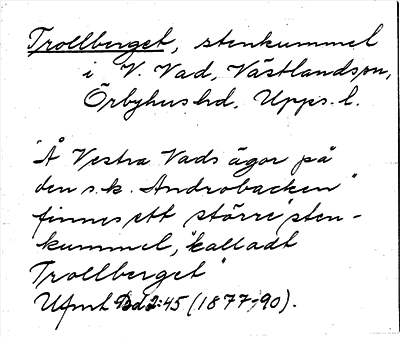 Trollberget, stenkummel
i V. Vad, Västlands sn,
Örbyhus hd, Upps. l.
"Å Vestra Vads ägor på
den s.k. Androbacken"
finnes ett större "sten-
kummel," kalladt
Trollberget"
Ufmt Bd 2:45 (1877-90).